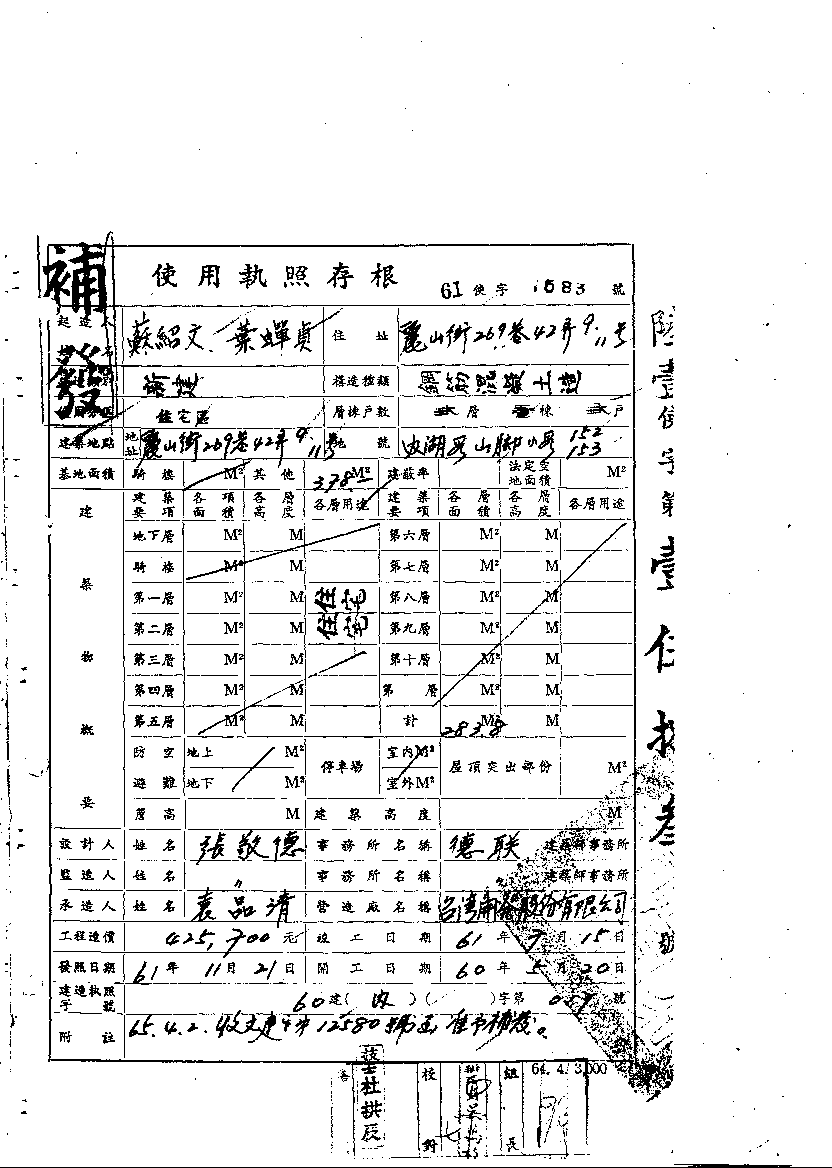 補發
使用執照存根
61 使字 1583 號
起造人 蘇紹文、葉蟬貞 住址 麗山街269巷42弄9.11號
新建 構造種類 鋼筋混凝土造
住宅區 層棟戶數 貳層 壹棟 貳戶
建築地點 地址 麗山街269巷42弄9.11號 地號 內湖段山腳小段 152 153
基地面積 騎樓 M² 其他 378 M² 建蔽率 法定空地面積 M²
建築物概要 建築要項 各項面積 各層高度 各層用途 建築要項 各層面積 各層高度 各層用途
地下層 M² M 第六層 M² M
騎樓 M² M 第七層 M² M
第一層 M² M 住宅 第八層 M² M
第二層 M² M 住宅 第九層 M² M
第三層 M² M 第十層 M² M
第四層 M² M 第 層 M² M
第五層 M² M 計 283.8 M² M
防空避難 地上 M² 停車場 室內M² 屋頂突出部份 M²
地下 M² 室外M²
簷高 M 建築高度 M
設計人 姓名 張敬德 事務所名稱 德联 建築師事務所
監造人 姓名 〃 事務所名稱 〃 建築師事務所
承造人 姓名 袁品清 營造廠名稱 股份有限公司
工程造價 425,700元 竣工日期 61年7月15日
發照日期 61年11月21日 開工日期 60年5月20日
建造執照字號 60建(內)( )字第 號
附註 65.4.2.收文建字第12580號函,准予補發。
技士杜拱辰
校對
組長
64.4.3,000
陸壹使字第壹